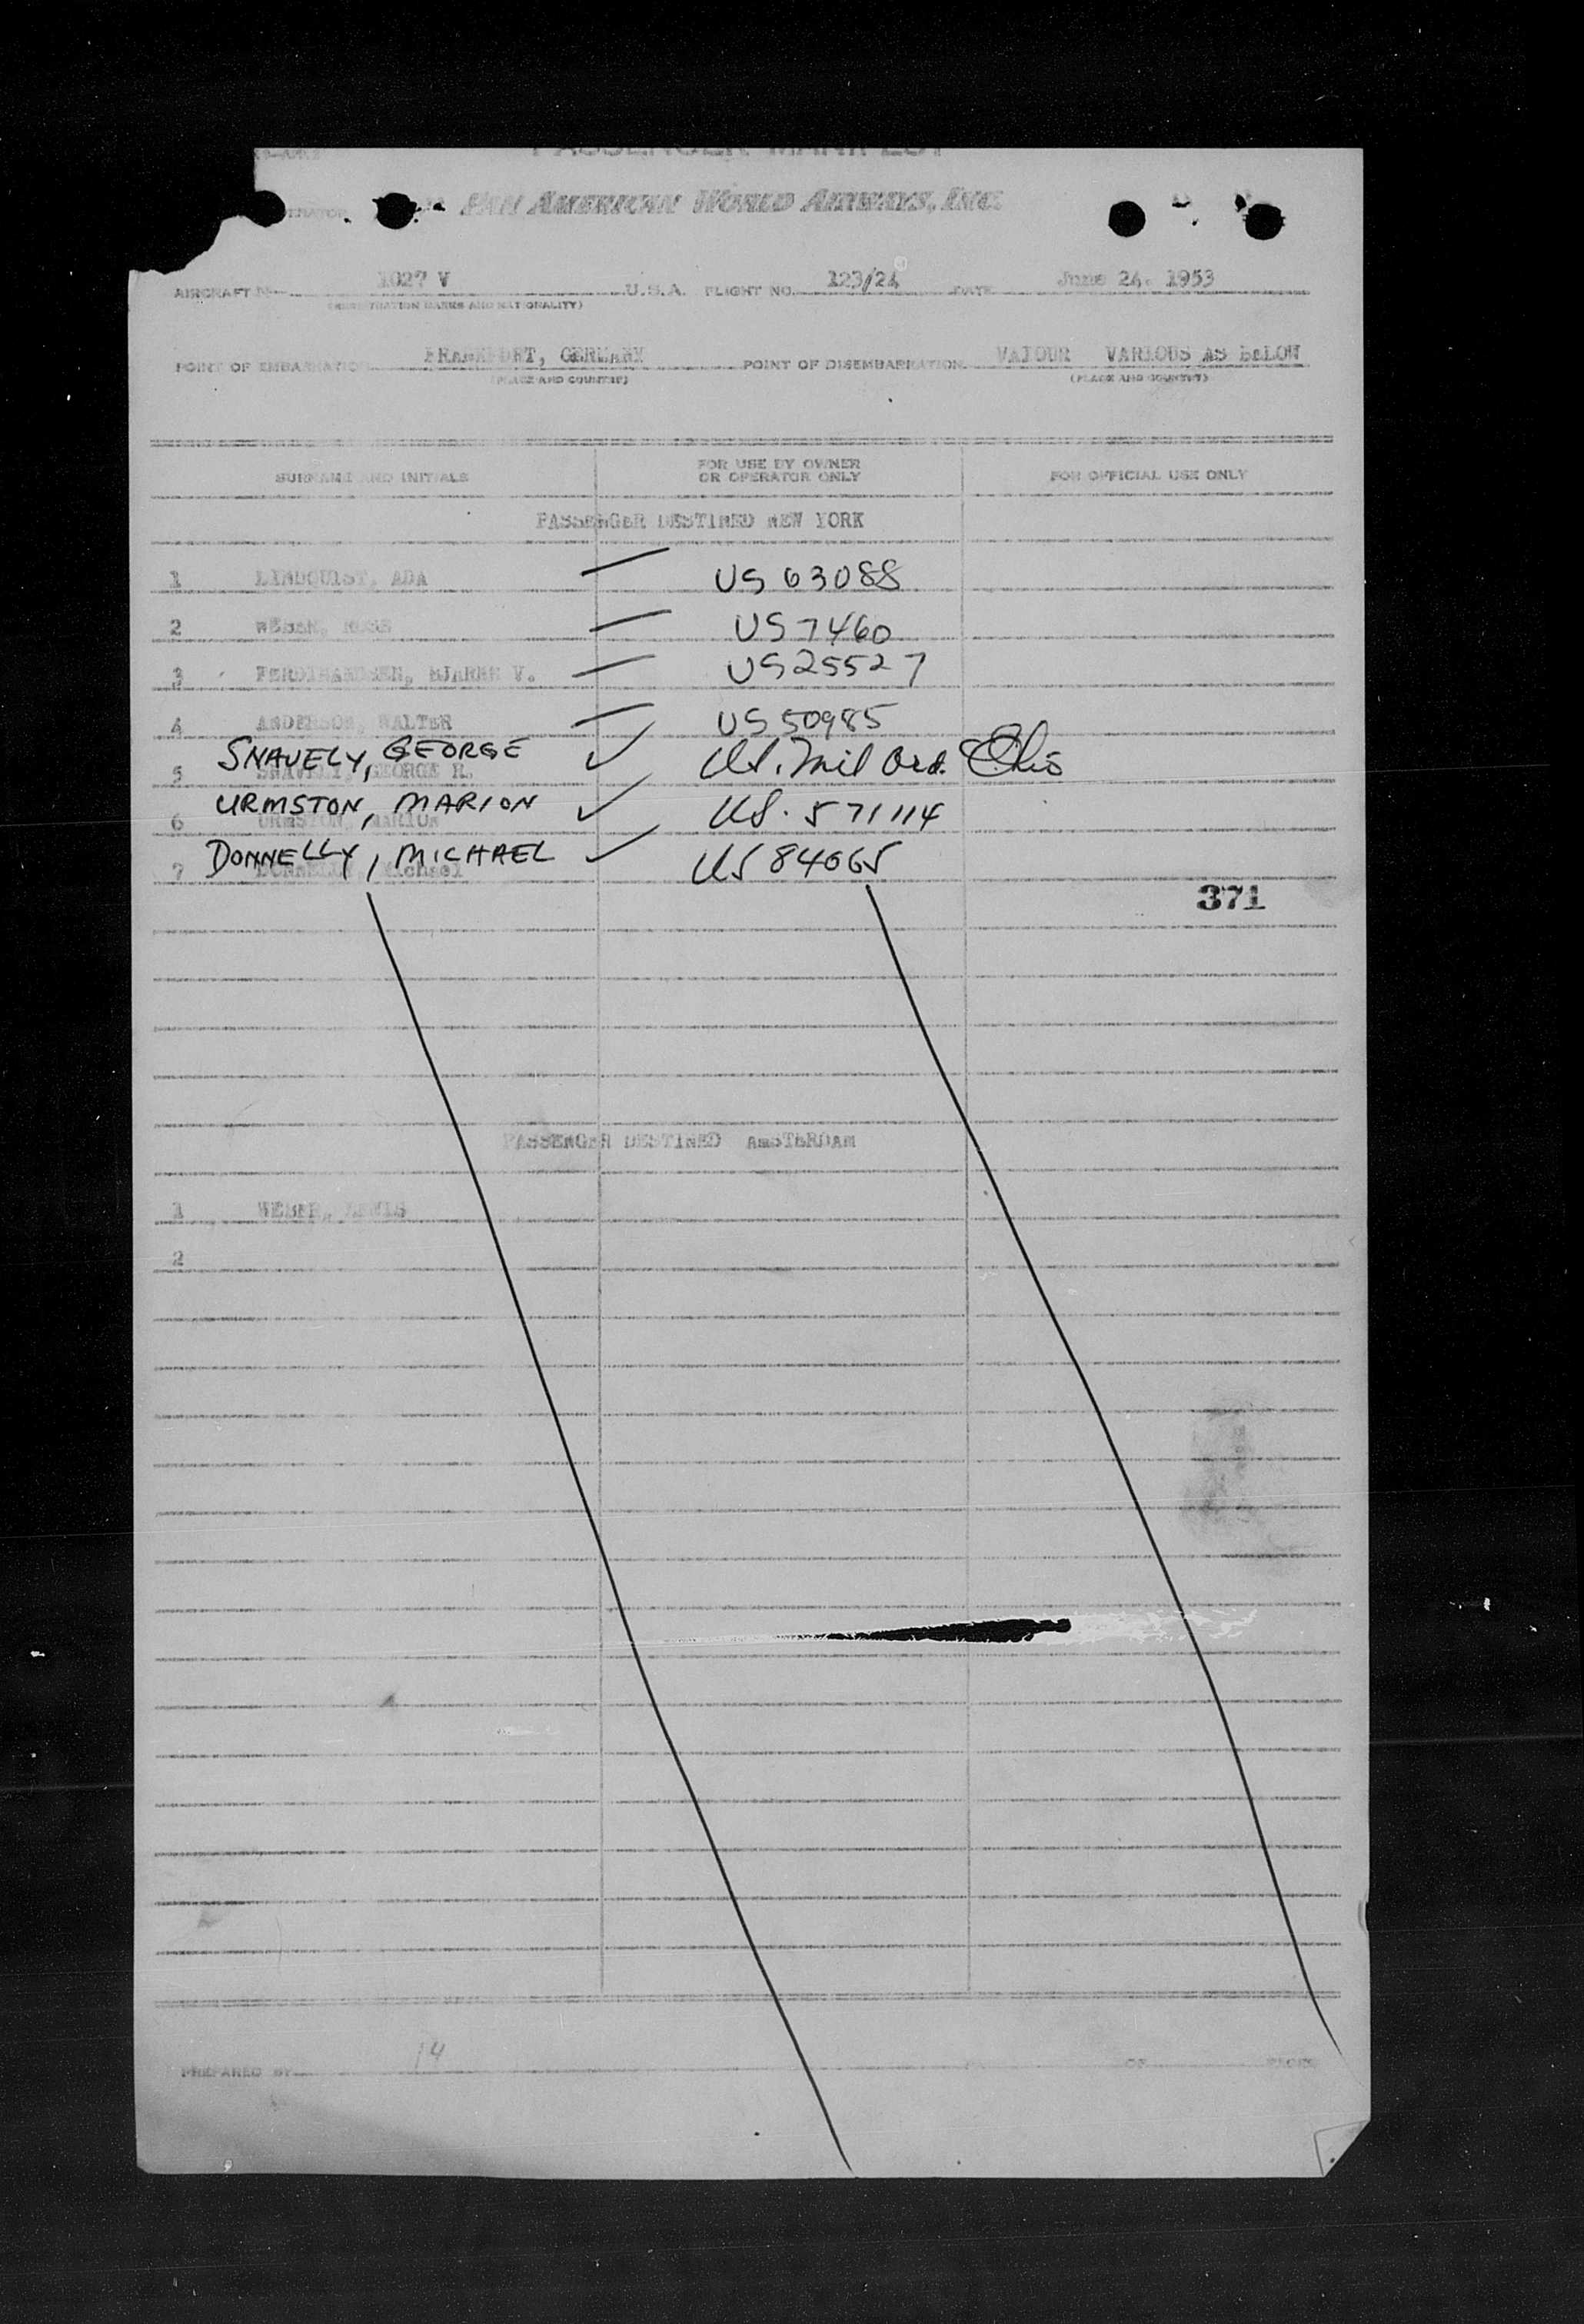 PASSENGER MANIFEST
PAN AMERICAN WORLD AIRWAYS, INC.
AIRCRAFT N 1027 V U.S.A. FLIGHT NO. 123/24 DATE June 24, 1953
(REGISTRATION MARKS AND NATIONALITY)
POINT OF EMBARKATION FRANKFORT, GERMANY POINT OF DISEMBARKATION VARIOUS AS BELOW
(PLACE AND COUNTRY) (PLACE AND COUNTRY)
SURNAME AND INITIALS FOR USE BY OWNER OR OPERATOR ONLY FOR OFFICIAL USE ONLY
PASSENGER DESTINED NEW YORK
1 LINDQUIST, ADA US 63088
2 US 7460
3 FERDINANDSEN, BJARNE V. US 25527
4 ANDERSON, WALTER US 50985
SNAVELY, GEORGE ✓ US. Mil Ord.
5 SNAVELY, GEORGE R.
URMSTON, MARION ✓ US. 571114
6 URMSTON, MARION
DONNELLY, MICHAEL ✓ US 84065
7 DONNELLY, Michael
371
PASSENGER DESTINED AMSTERDAM
1 WEBER, LEWIS
2
PREPARED BY 14 OF PAGES